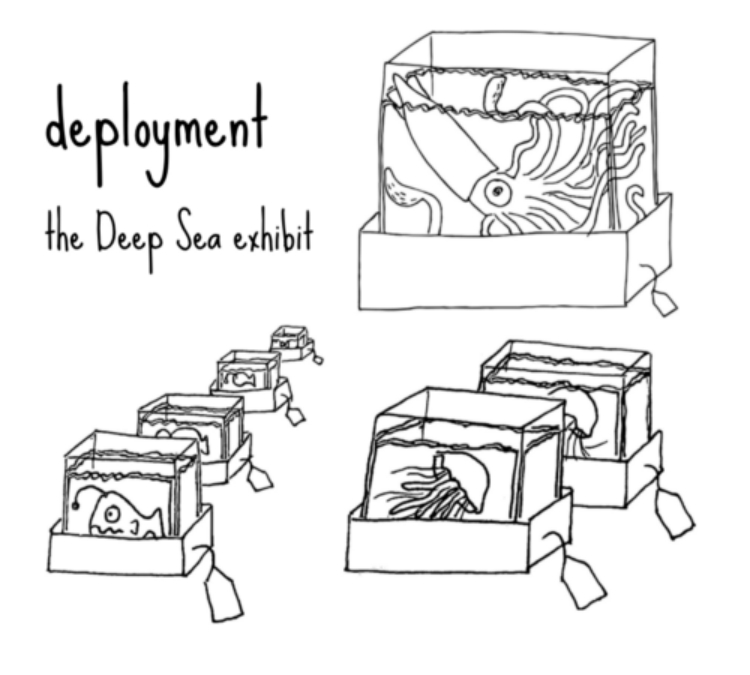 deployment
the Deep Sea exhibit